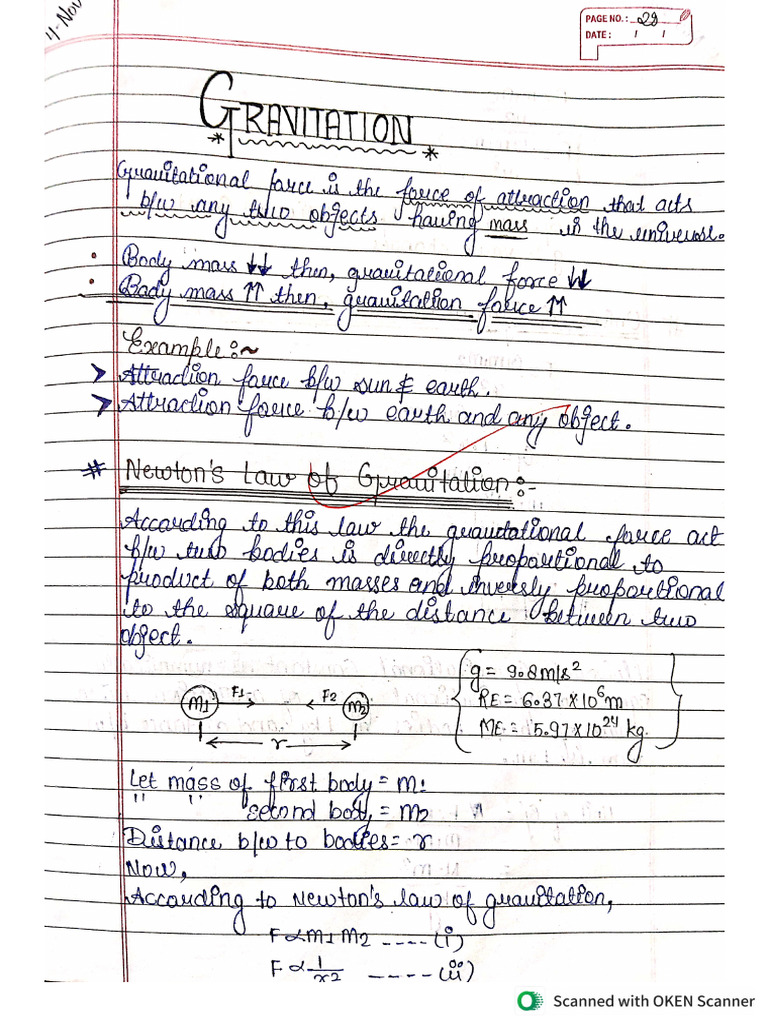 11-Nov
PAGE NO.: 29
DATE: / /
GRAVITATION
Gravitational force is the force of attraction that acts
b/w any two objects having mass in the universe.
• Body mass ↓↓ then, gravitational force ↓↓
• Body mass ↑↑ then, gravitation force ↑↑
Example:~
> Attraction force b/w sun & earth.
> Attraction force b/w earth and any object.
# Newton's Law of Gravitation:-
According to this law the gravitational force act
b/w two bodies is directly proportional to
product of both masses and inversly proportional
to the square of the distance between two
object.
g = 9.8 m/s²
RE = 6.37 × 10⁶ m
ME = 5.97 × 10²⁴ kg.
m1 F1 F2 m2
r
Let mass of first body = m1
" " second body = m2
Distance b/w to bodies = r
Now,
According to Newton's law of gravitation,
F ∝ m1 m2 ---- (i)
F ∝ 1/r2 ---- (ii)
Scanned with OKEN Scanner